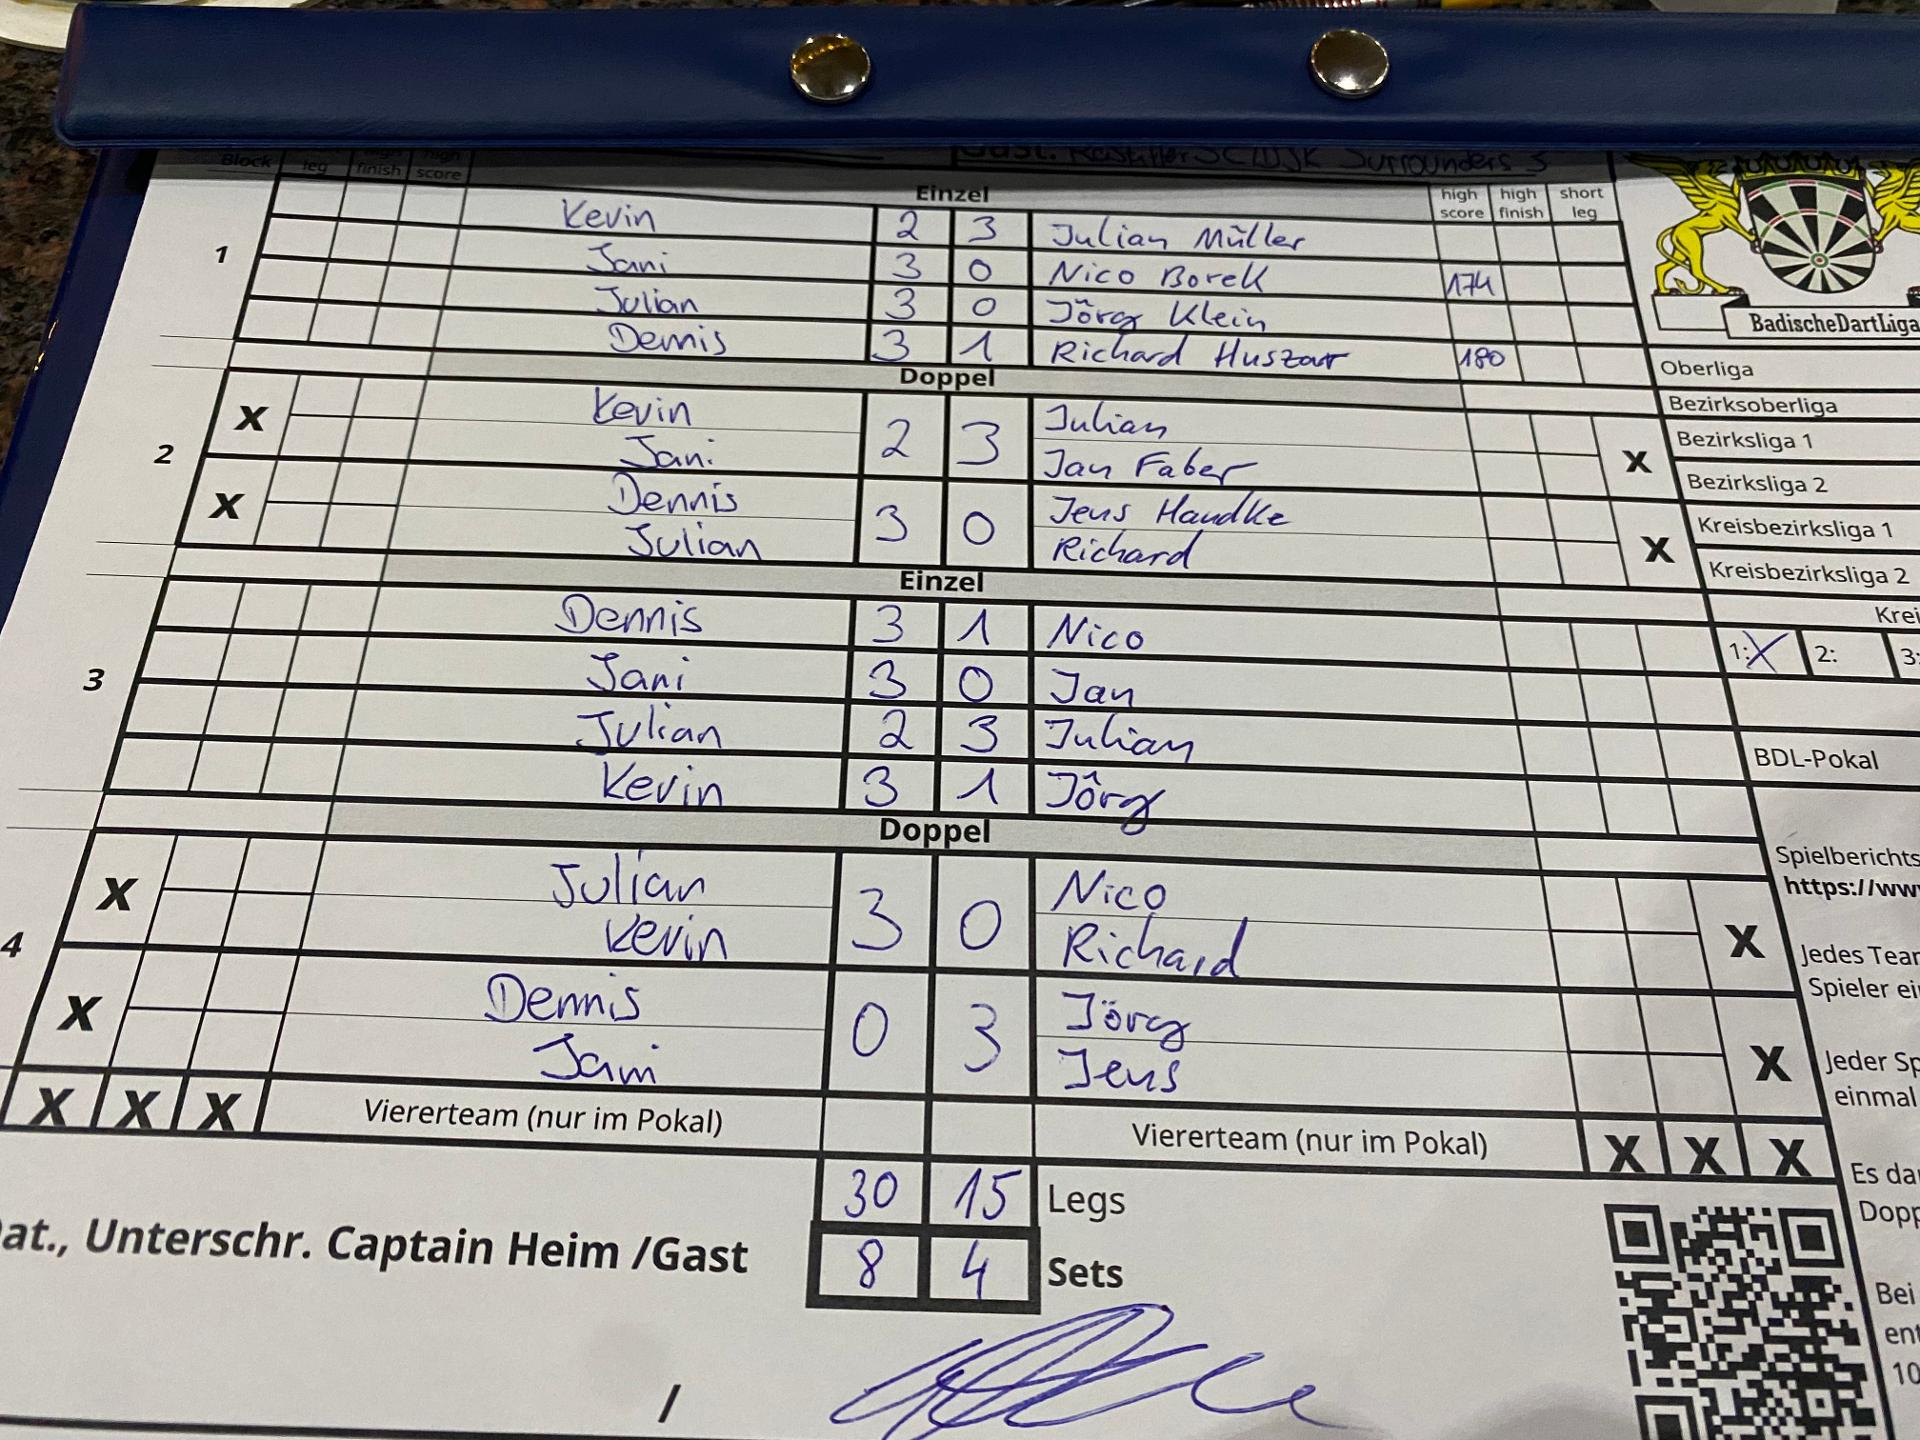 Gast: Rastatter SC/DJK Surrounders 3
Block leg finish score
Einzel
high score high finish short leg
1
Kevin 2 3 Julian Müller
Jani 3 0 Nico Borek 174
Julian 3 0 Jörg Klein
Dennis 3 1 Richard Huszar 180
Doppel
2
X Kevin 2 3 Julian X
Jani Jan Faber
X Dennis 3 0 Jens Handke X
Julian Richard
Einzel
3
Dennis 3 1 Nico
Jani 3 0 Jan
Julian 2 3 Julian
Kevin 3 1 Jörg
Doppel
4
X Julian 3 0 Nico X
Kevin Richard
X Dennis 0 3 Jörg X
Jani Jens
X X X Viererteam (nur im Pokal) Viererteam (nur im Pokal) X X X
30 15 Legs
8 4 Sets
at., Unterschr. Captain Heim /Gast
/
BadischeDartLiga
Oberliga
Bezirksoberliga
Bezirksliga 1
Bezirksliga 2
Kreisbezirksliga 1
Kreisbezirksliga 2
Krei
1: X 2: 3:
BDL-Pokal
Spielberichts
https://ww
Jedes Tear
Spieler ei
Jeder Sp
einmal
Es da
Dopp
Bei
ent
10